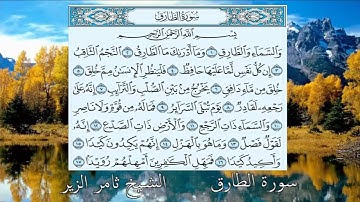 سُورَةُ الطَّارِقِ
بِسْمِ اللَّهِ الرَّحْمَٰنِ الرَّحِيمِ
وَالسَّمَاءِ وَالطَّارِقِ ١ وَمَا أَدْرَاكَ مَا الطَّارِقُ ٢ النَّجْمُ الثَّاقِبُ
٣ إِن كُلُّ نَفْسٍ لَّمَّا عَلَيْهَا حَافِظٌ ٤ فَلْيَنظُرِ الْإِنسَانُ مِمَّ خُلِقَ
٥ خُلِقَ مِن مَّاءٍ دَافِقٍ ٦ يَخْرُجُ مِن بَيْنِ الصُّلْبِ وَالتَّرَائِبِ ٧ إِنَّهُ عَلَىٰ
رَجْعِهِ لَقَادِرٌ ٨ يَوْمَ تُبْلَى السَّرَائِرُ ٩ فَمَا لَهُ مِن قُوَّةٍ وَلَا نَاصِرٍ
١٠ وَالسَّمَاءِ ذَاتِ الرَّجْعِ ١١ وَالْأَرْضِ ذَاتِ الصَّدْعِ ١٢ إِنَّهُ
لَقَوْلٌ فَصْلٌ ١٣ وَمَا هُوَ بِالْهَزْلِ ١٤ إِنَّهُمْ يَكِيدُونَ كَيْدًا
١٥ وَأَكِيدُ كَيْدًا ١٦ فَمَهِّلِ الْكَافِرِينَ أَمْهِلْهُمْ رُوَيْدًا ١٧
سورة الطارق الشيخ ثامر الزير